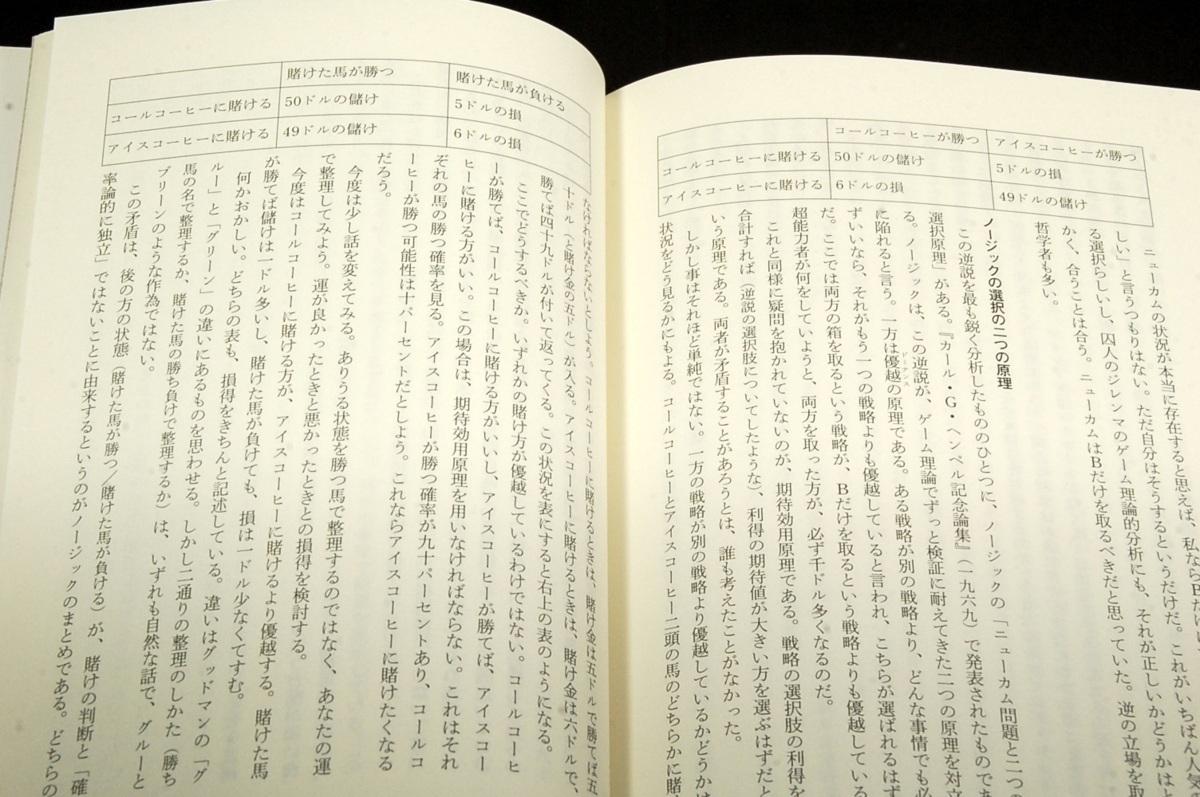 コールコーヒーが勝つ　アイスコーヒーが勝つ
コールコーヒーに賭ける　50ドルの儲け　5ドルの損
アイスコーヒーに賭ける　6ドルの損　49ドルの儲け
ニューカムの状況が本当に存在すると思えば、私ならBだけ
しい」と言うつもりはない。ただ自分はそうするというだけだ。これがいちばん人気の
る選択らしいし、囚人のジレンマのゲーム理論的分析にも、それが正しいかどうかはと
かく、合うことは合う。ニューカムはBだけを取るべきだと思っていた。逆の立場を取
哲学者も多い。
ノージックの選択の二つの原理
この逆説を最も鋭く分析したもののひとつに、ノージックの「ニューカム問題と二つの
選択原理」がある。『カール・G・ヘンペル記念論集』（一九六九）で発表されたものであ
る。ノージックは、この逆説が、ゲーム理論でずっと検証に耐えてきた二つの原理を対立
に陥れると言う。一方は優越の原理である。ある戦略が別の戦略より、どんな事情でも必
ドミナンス
ずいいなら、それがもう一つの戦略よりも優越していると言われ、こちらが選ばれるはず
だ。ここでは両方の箱を取るという戦略が、Bだけを取るという戦略よりも優越している
超能力者が何をしていようと、両方を取った方が、必ず千ドル多くなるのだ。
これと同様に疑問を抱かれていないのが、期待効用原理である。戦略の選択肢の利得を
合計すれば（逆説の選択肢についてしたような）、利得の期待値が大きい方を選ぶはずだと
いう原理である。両者が矛盾することがあろうとは、誰も考えたことがなかった。
しかし事はそれほど単純ではない。一方の戦略が別の戦略より優越しているかどうかは
状況をどう見るかにもよる。コールコーヒーとアイスコーヒー二頭の馬のどちらかに賭
賭けた馬が勝つ　賭けた馬が負ける
コールコーヒーに賭ける　50ドルの儲け　5ドルの損
アイスコーヒーに賭ける　49ドルの儲け　6ドルの損
なければならないとしよう。コールコーヒーに賭けるときは、賭け金は五ドルで勝てば五
十ドル（と賭け金の五ドル）が入る。アイスコーヒーに賭けるときは、賭け金は六ドルで、
勝てば四十九ドルが付いて返ってくる。この状況を表にすると右上の表のようになる。
ここでどうするべきか。いずれかの賭け方が優越しているわけではない。コールコーヒ
ーが勝てば、コールコーヒーに賭ける方がいいし、アイスコーヒーが勝てば、アイスコー
ヒーに賭ける方がいい。この場合は、期待効用原理を用いなければならない。これはそれ
ぞれの馬の勝つ確率を見る。アイスコーヒーが勝つ確率が九十パーセントあり、コールコ
ーヒーが勝つ可能性は十パーセントだとしよう。これならアイスコーヒーに賭けたくなる
だろう。
今度は少し話を変えてみる。ありうる状態を勝つ馬で整理するのではなく、あなたの運
で整理してみよう。運が良かったときと悪かったときとの損得を検討する。
今度はコールコーヒーに賭ける方が、アイスコーヒーに賭けるより優越する。賭けた馬
が勝てば儲けは一ドル多いし、賭けた馬が負けても、損は一ドル少なくてすむ。
何かおかしい。どちらの表も、損得をきちんと記述している。違いはグッドマンの「グ
ルー」と「グリーン」の違いにあるものを思わせる。しかし二通りの整理のしかた（勝ち
馬の名で整理するか、賭けた馬の勝ち負けで整理するか）は、いずれも自然な話で、グルーと
ブリーンのような作為ではない。
この矛盾は、後の方の状態（賭けた馬が勝つ／賭けた馬が負ける）が、賭けの判断と「確
率論的に独立」ではないことに由来するというのがノージックのまとめである。どちらの